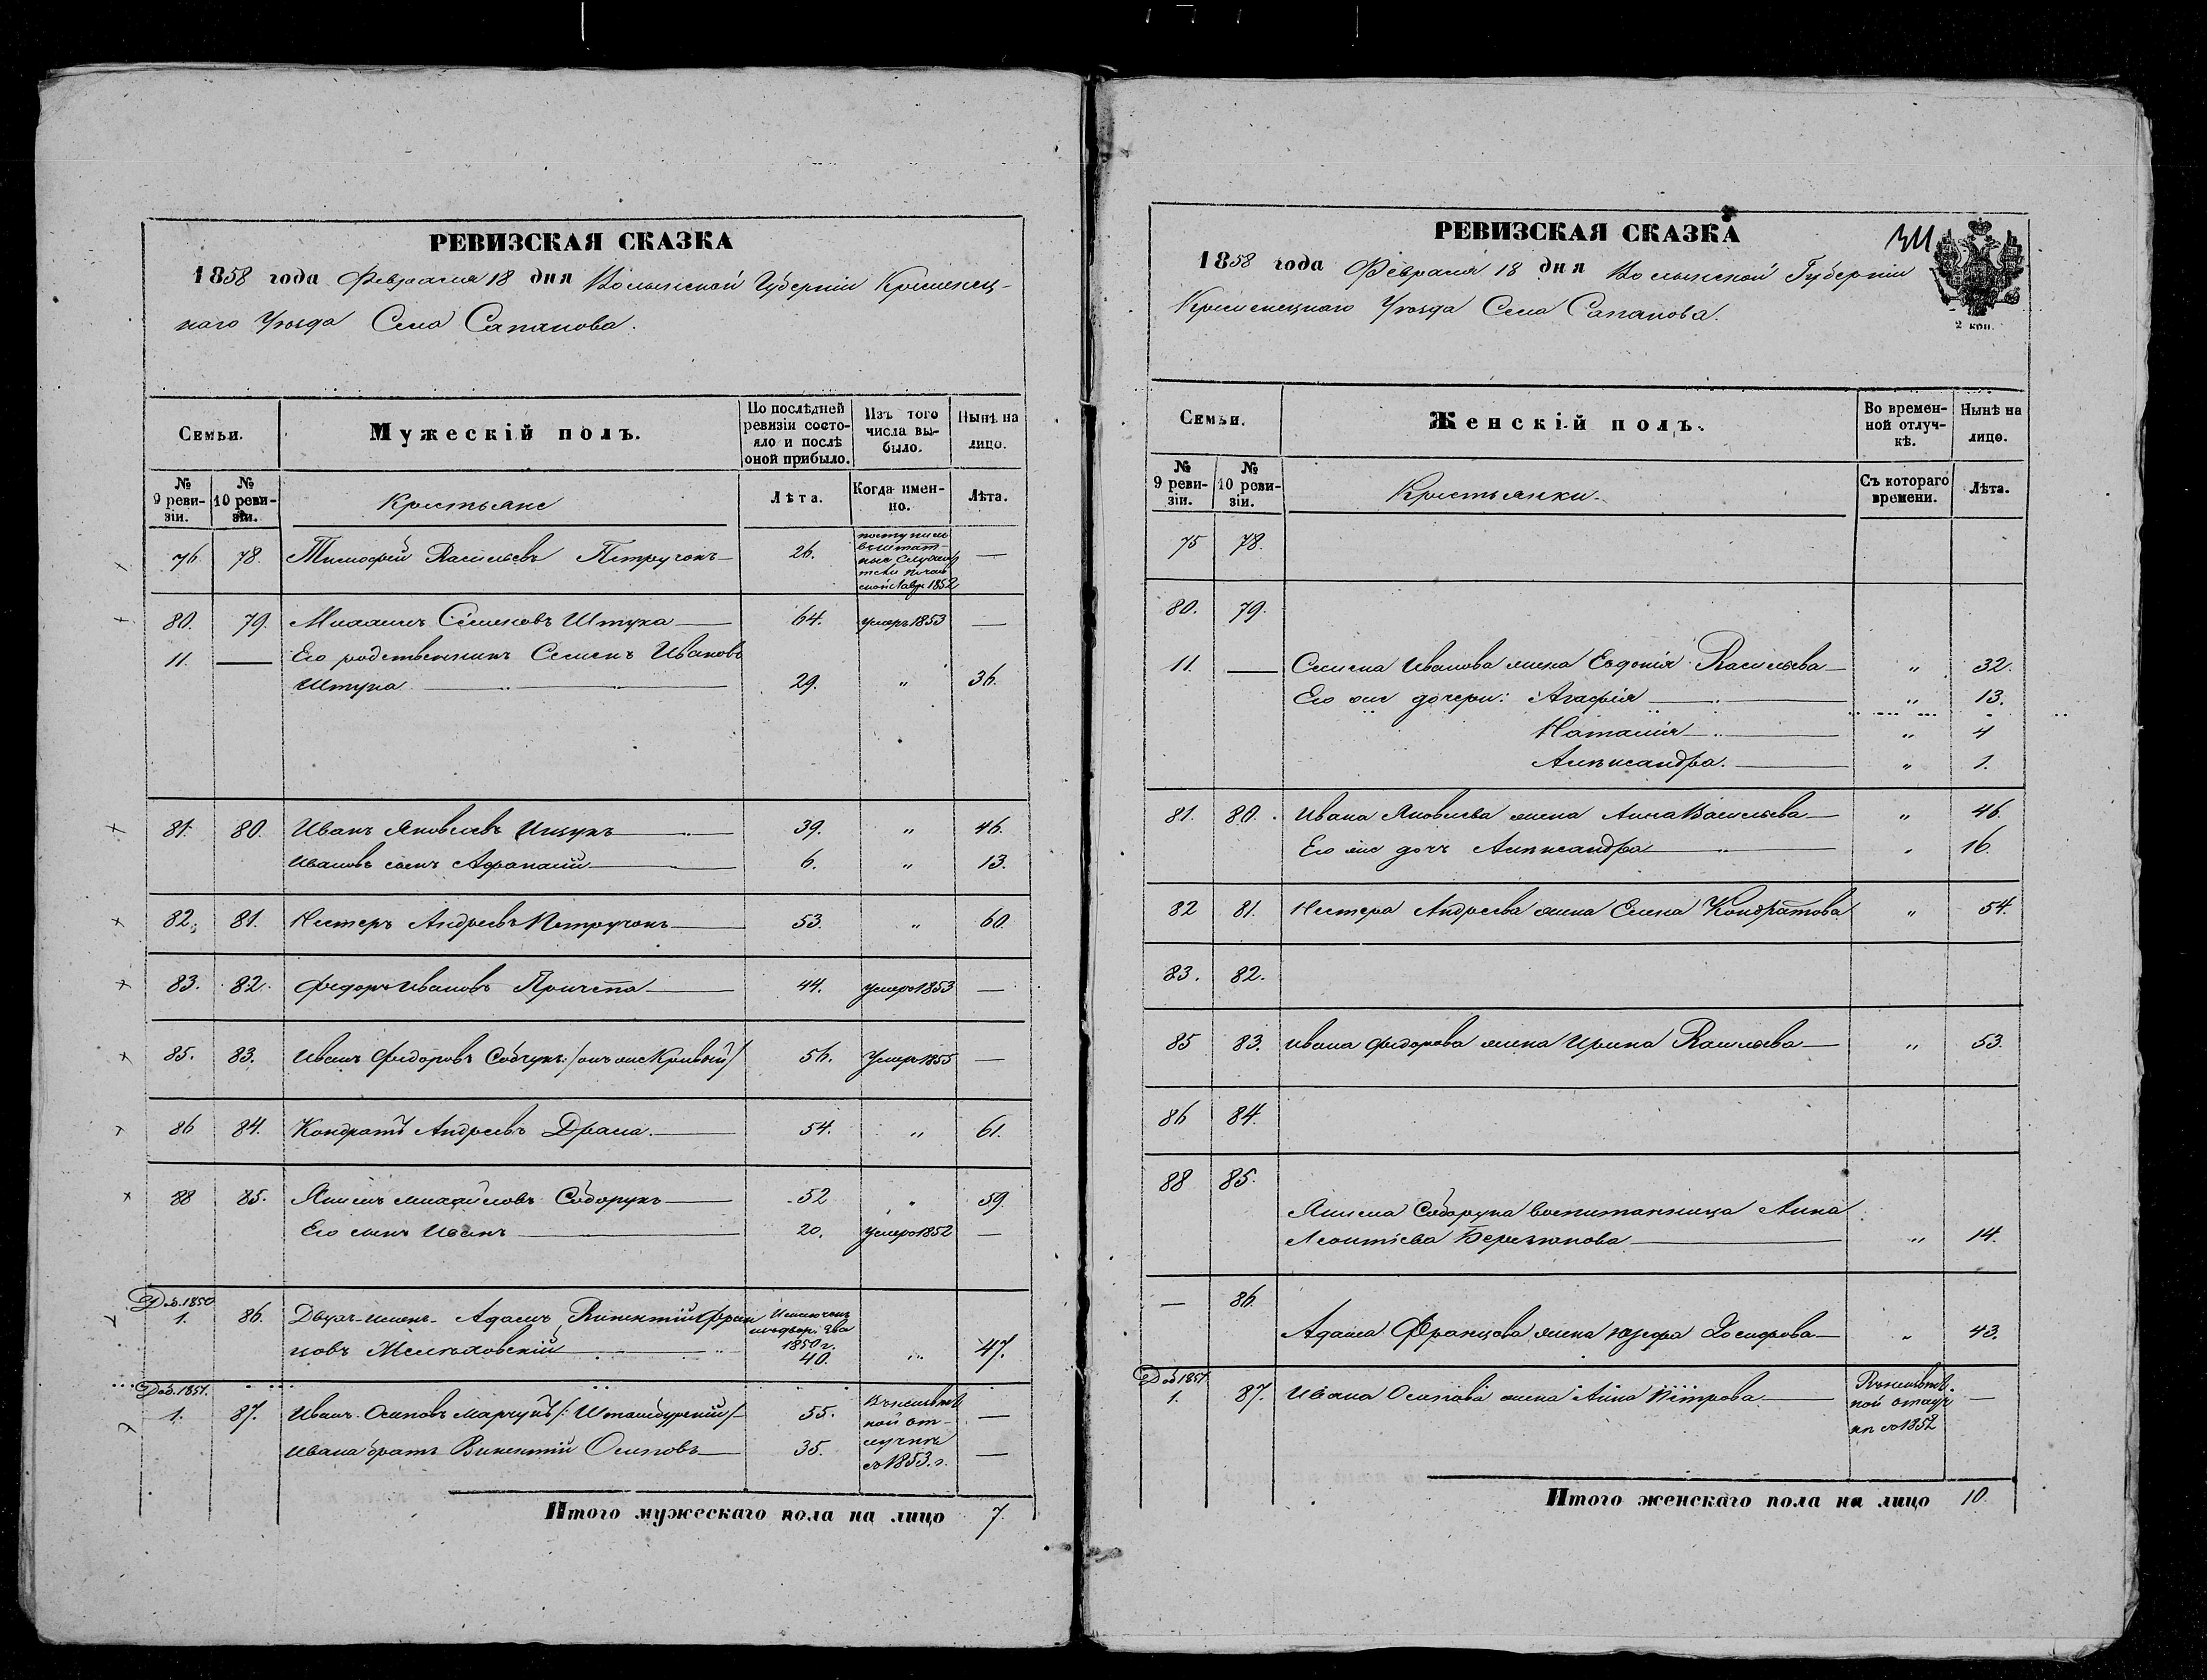 РЕВИЗСКАЯ СКАЗКА
1858 года Февраля 18 дня Волынской Губерніи Кременец-
каго Уѣзда Села Сапанова.
Семьи.
Мужескій полъ.
По послѣдней ревизіи состояло и послѣ оной прибыло.
Изъ того числа выбыло.
Нынѣ на лицо.
№ 9 ревизіи.
№ 10 ревизіи.
Крестьяне
Лѣта.
Когда именно.
Лѣта.
76. 78. Тимофей Васильевъ Петручокъ 26. поступилъ въ штатные служители 1852 —
80. 79. Семеновъ Штука 64. умеръ 1853 —
11. — Его родственникъ Семенъ Ивановъ
Штука 29. „ 36.
81. 80. Иванъ Яковлевъ 39. „ 46.
Ивановъ сынъ Афанасій 6. „ 13.
82. 81. Нестеръ Андреевъ Петручокъ 53. „ 60.
83. 82. Федоръ Ивановъ Причепа 44. умеръ 1853 —
85. 83. Иванъ Федоровъ /онъ же Кривый/ 56. Умеръ 1855 —
86 84. Кондратъ Андреевъ 54. „ 61.
88 85. Михайловъ Сидорукъ 52 „ 59.
Его сынъ Иванъ 20. умеръ 1852 —
Доб. 1850
1. 86. Двухъ-именъ Адамъ Викентій Фран
цовъ 1850 г. 40. „ 47.
Доб. 1851.
1. 87. Иванъ Осиповъ 55. Въ неизвѣстной отлучкѣ съ 1853. г. —
Ивана братъ Викентій Осиповъ 35. —
Итого мужескаго пола на лицо 7.
РЕВИЗСКАЯ СКАЗКА
1858 года Февраля 18 дня Волынской Губерніи
Кременецкаго Уѣзда Села Сапанова.
2 коп.
Семьи.
Женскій полъ.
Во временной отлучкѣ.
Нынѣ на лицо.
№ 9 ревизіи.
№ 10 ревизіи.
Крестьянки.
Съ котораго времени.
Лѣта.
75 78.
80. 79.
11. — Семена Иванова жена Евдокія Васильева „ 32.
Его же дочери: Агафія „ 13.
Наталія „ 4
Александра. „ 1.
81. 80. Ивана Яковлева жена Анна Васильева „ 46.
Его же дочь Александра „ 16.
82 81. Нестера Андреева жена Елена Кондратова „ 54.
83. 82.
85 83. Ивана Федорова жена Ирина Васильева „ 53.
86 84.
88 85.
Сидорука воспитанница Анна
Леонтіева „ 14.
— 86.
Адама Францова жена Юзефа „ 43.
Доб. 1851
1. 87. Ивана Осипова жена Анна Петрова Въ неизвѣстной отлучкѣ съ 1852 —
Итого женскаго пола на лицо 10.